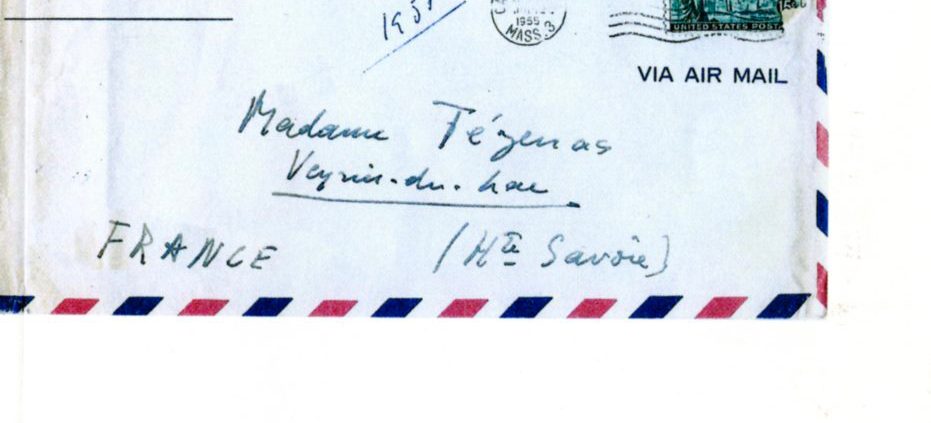 195
1955
MASS. 3
15¢
UNITED STATES POST
VIA AIR MAIL
Madame Tézenas
Veyrier-du-Lac
FRANCE (Hte Savoie)